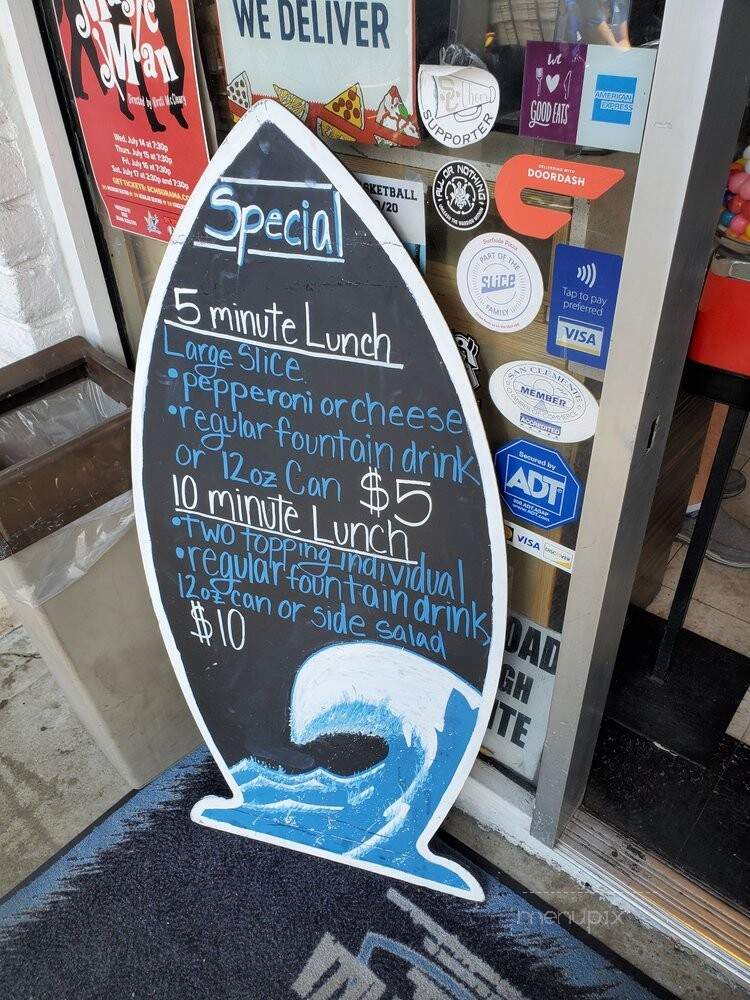 Music
Man
Directed by
Wed. July 14 at 7:30p
Thurs. July 15 at 7:30p
Fri. July 16 at 7:30p
Sat. July 17 at 2:30p and 7:30p
GET TICKETS: SCHSDRAMA.CO
WE DELIVER
Cheer
SUPPORTER
we
GOOD EATS
AMERICAN
EXPRESS
ALL OR NOTHING
DELIVERING WITH
DOORDASH
SKETBALL
/20
Surfside Pizza
PART OF THE
SLiCE
FAMILY
Tap to pay
preferred
VISA
SAN CLEMENTE
MEMBER
CHAMBER OF COMMERCE
ACCREDITED
Secured by
ADT
www.ADT.com
VISA DISCOVER
OAD
GH
TE
Special
5 minute Lunch
Large Slice.
•pepperoni or cheese
•regular fountain drink
or 12oz Can $5
10 minute Lunch
•two topping individual
•regular fountain drink,
12oz can or side salad
$10
menupix